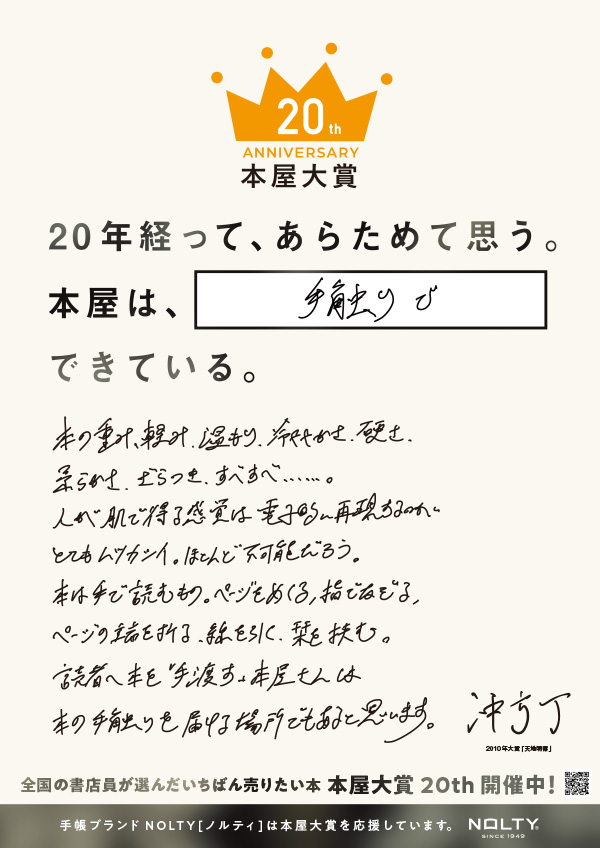 20th
ANNIVERSARY
本屋大賞
20年経って、あらためて思う。
本屋は、手触りで
できている。
本の重み、軽み、温もり、冷ややかさ、硬さ、
柔らかさ、ざらつき、すべすべ……。
人が肌で得る感覚は電子的に再現するのが
とてもムツカシイ。ほとんど不可能だろう。
本は手で読むもの。ページをめくる、指で反ぞる、
ページの端を折る、線を引く、栞を挟む。
読者へ本を手渡す、本屋さんは
本の手触りを届ける場所でもあると思います。
冲方丁
2010年大賞「天地明察」
全国の書店員が選んだいちばん売りたい本 本屋大賞 20th 開催中!
手帳ブランドNOLTY[ノルティ]は本屋大賞を応援しています。 NOLTY
SINCE 1949